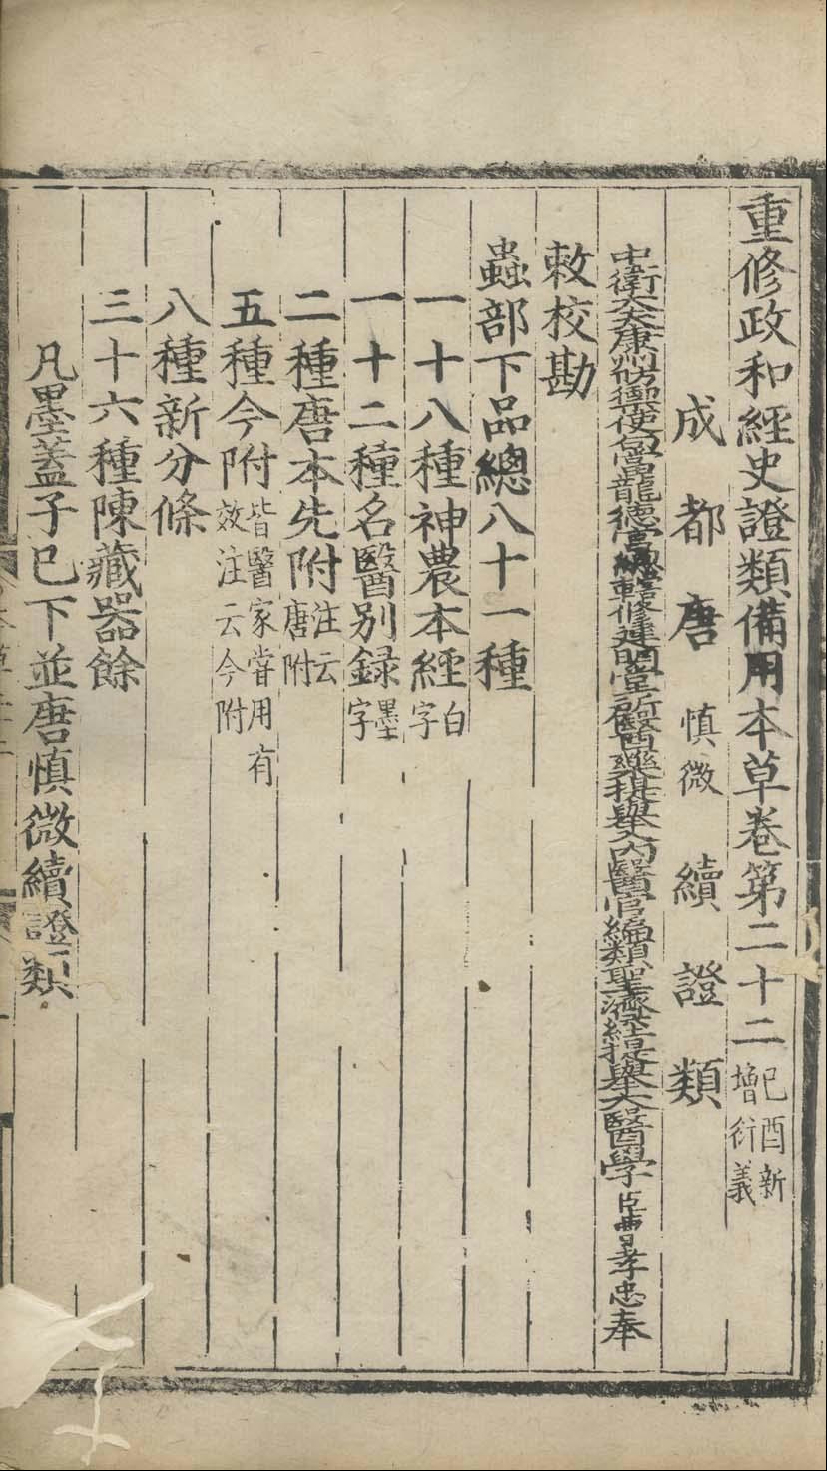 重修政和經史證類備用本草卷第二十二 己酉新增衍義
成都唐慎微續證類
中衛大夫康州防禦使句當龍德宮總轄修建明堂所醫藥提舉入內醫官編類聖濟經提舉大醫學臣曹孝忠奉
敕校勘
蟲部下品總八十一種
一十八種神農本經 白字
一十二種名醫別録 墨字
二種唐本先附 注云唐附
五種今附 皆醫家嘗用有效注云今附
八種新分條
三十六種陳藏器餘
凡墨蓋子已下並唐慎微續證類